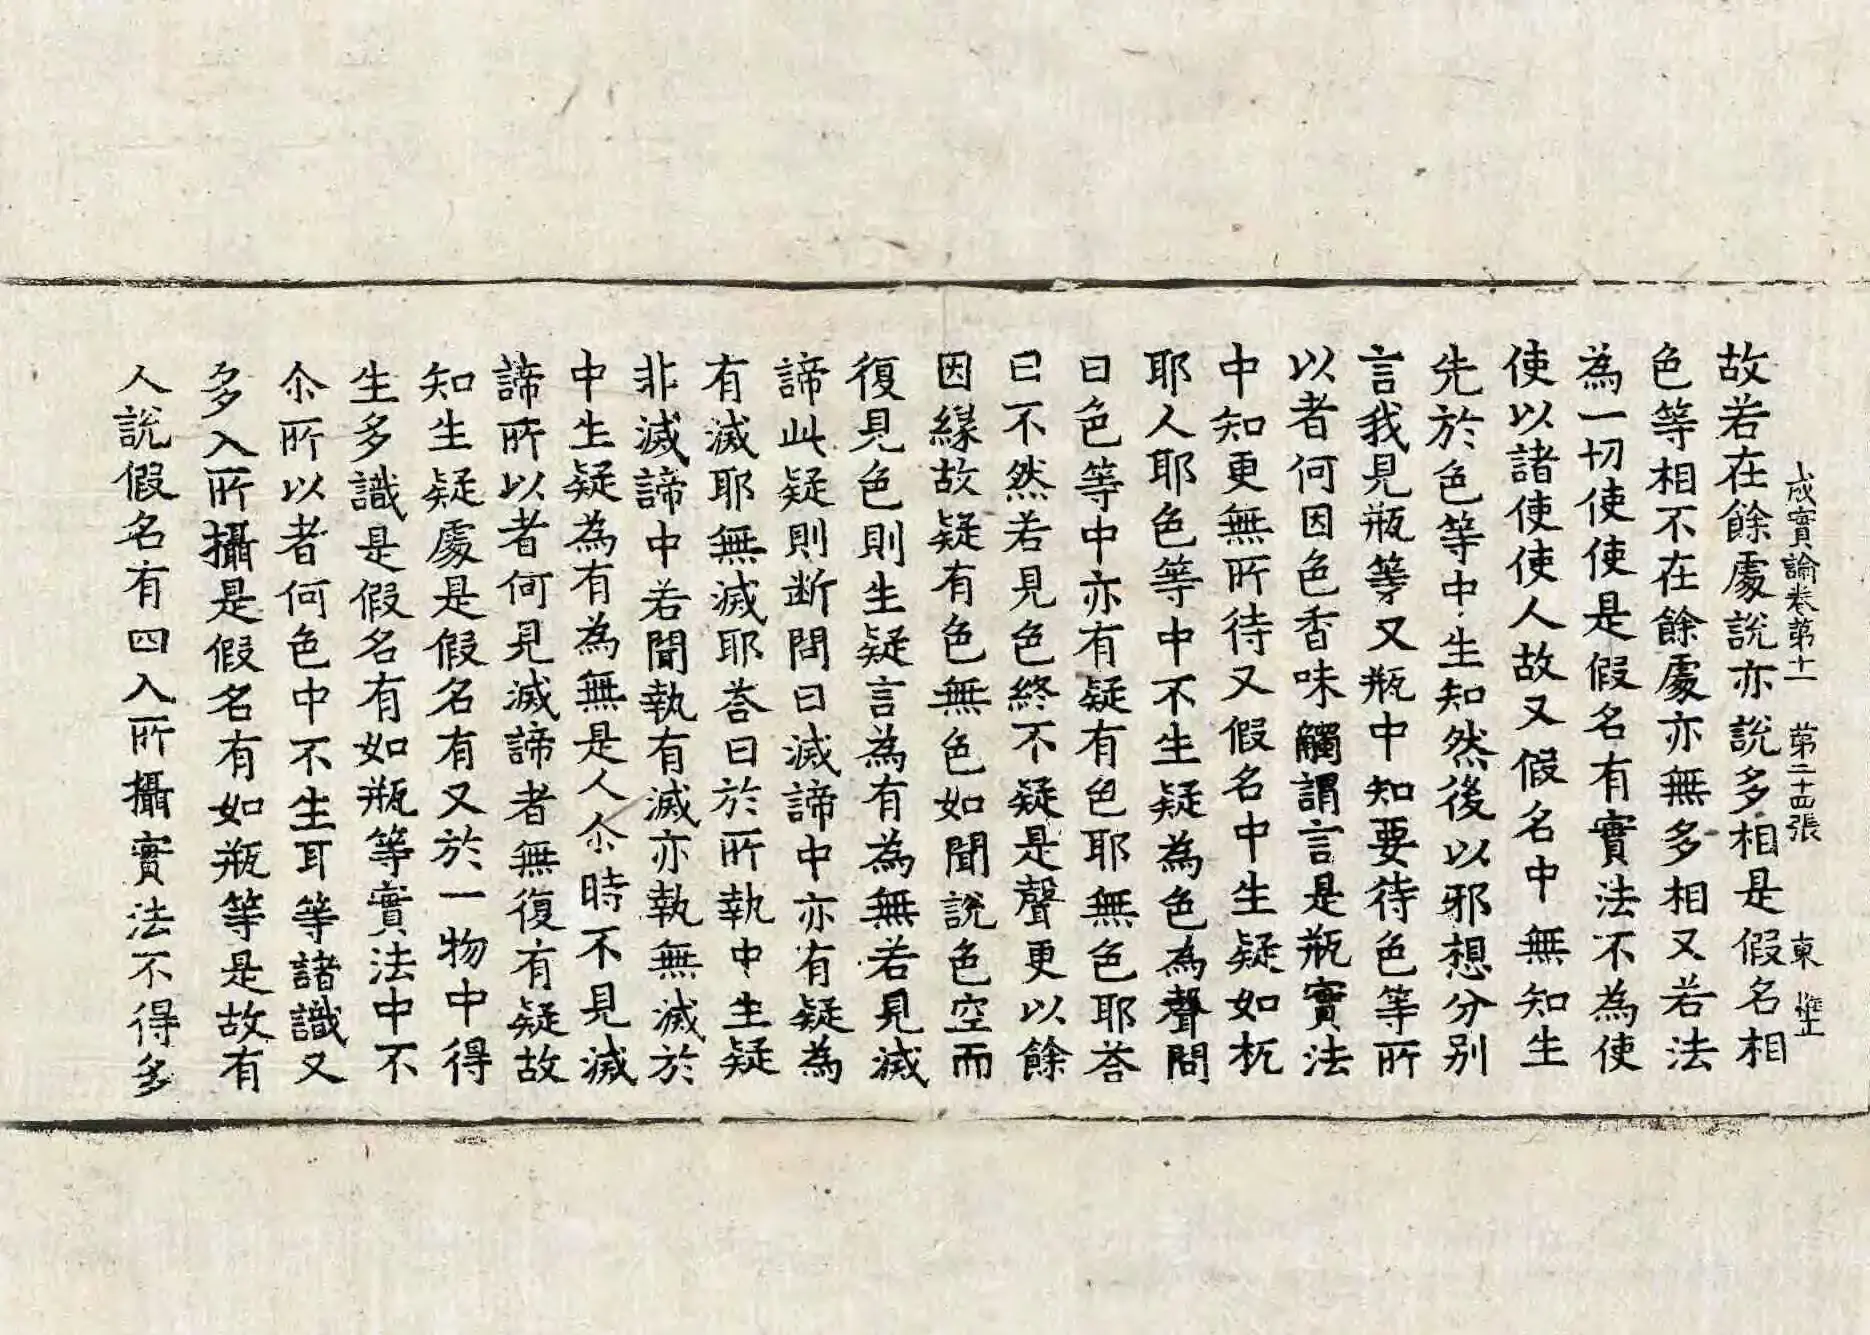 成實論卷第十一　第二十四張　東
故若在餘處說亦說多相是假名相
色等相不在餘處亦無多相又若法
為一切使使是假名有實法不為使
使以諸使使人故又假名中無知生
先於色等中生知然後以邪想分別
言我見瓶等又瓶中知要待色等所
以者何因色香味觸謂言是瓶實法
中知更無所待又假名中生疑如杌
耶人耶色等中不生疑為色為聲問
曰色等中亦有疑有色耶無色耶荅
曰不然若見色終不疑是聲更以餘
因緣故疑有色無色如聞說色空而
復見色則生疑言為有為無若見滅
諦此疑則断問曰滅諦中亦有疑為
有滅耶無滅耶荅曰於所執中生疑
非滅諦中若聞執有滅亦執無滅於
中生疑為有為無是人尒時不見滅
諦所以者何見滅諦者無復有疑故
知生疑處是假名有又於一物中得
生多識是假名有如瓶等實法中不
尒所以者何色中不生耳等諸識又
多入所攝是假名有如瓶等是故有
人說假名有四入所攝實法不得多